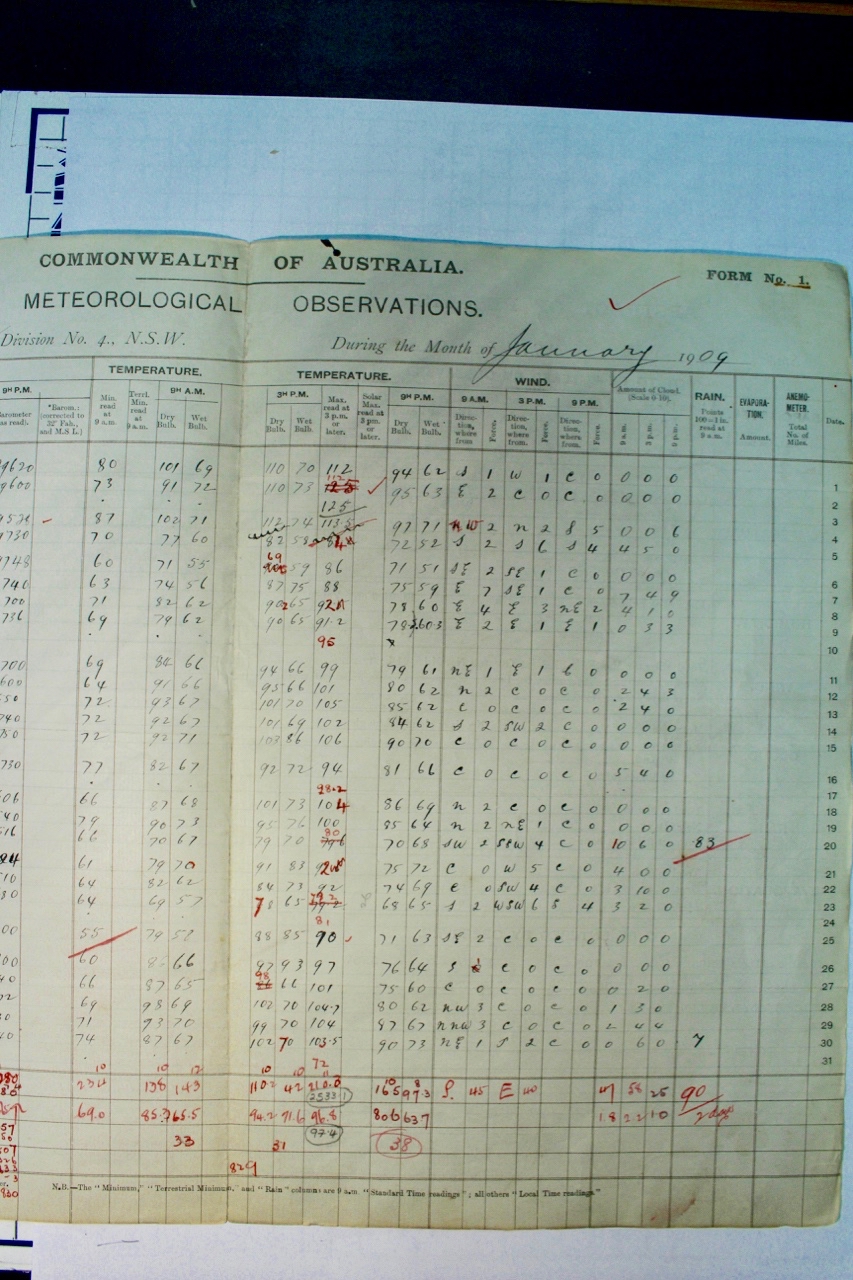 COMMONWEALTH OF AUSTRALIA.
FORM No. 1.
METEOROLOGICAL OBSERVATIONS.
Division No. 4., N.S.W. During the Month of January 1909
9H P.M. TEMPERATURE. TEMPERATURE. WIND. Amount of Cloud. (Scale 0-10). RAIN. EVAPORATION. ANEMOMETER. Date.
Barometer (as read). *Barom.: (corrected to 32° Fah., and M.S L.) Min. read at 9 a.m. Terrl. Min. read at 9 a.m. 9H A.M. Dry Bulb. Wet Bulb. 3H P.M. Dry Bulb. Wet Bulb. Max. read at 3 p.m. or later. Solar Max. read at 3 pm. or later. 9H P.M. Dry Bulb. Wet Bulb. 9 A.M. Direction, where from Force. 3 P.M. Direction, where from. Force. 9 P.M. Direction, where from. Force. 9 a.m. 3 p.m. 9 p.m. Points 100=1 in. read at 9 a.m. Amount. Total No. of Miles.
9620 80 101 69 110 70 112 94 62 S 1 W 1 C 0 0 0 0 1
9600 73 91 72 110 73 95 63 E 2 C 0 C 0 0 0 0 2
125
87 102 71 112 74 113.5 97 71 NW 2 N 2 S 5 0 0 6 3
9730 70 77 60 82 58 72 52 S 2 S 6 S 4 4 5 0 4
5
9748 60 71 55 69 59 86 71 51 SE 2 SE 1 C 0 0 0 0 6
740 63 74 56 87 75 88 75 59 E 7 SE 1 C 0 7 4 9 7
700 71 82 62 90 65 92 78 60 E 4 E 3 NE 2 4 1 0 8
736 69 79 62 90 65 91.2 78 60.3 E 2 E 1 E 1 0 3 3 9
95 10
700 69 84 66 94 66 99 79 61 NE 1 E 1 C 0 0 0 0 11
600 64 91 66 95 66 101 80 62 N 2 C 0 C 0 2 4 3 12
550 72 93 67 101 70 105 85 62 C 0 C 0 C 0 2 4 0 13
740 72 92 67 101 69 102 84 62 S 2 SW 2 C 0 0 0 0 14
750 72 92 71 103 86 106 90 70 C 0 C 0 C 0 0 0 0 15
730 77 82 67 92 72 94 81 66 C 0 C 0 C 0 5 4 0 16
98.2 17
606 66 87 68 101 73 104 86 69 N 2 C 0 C 0 0 0 0 18
540 79 90 73 95 76 100 85 64 N 2 NE 1 C 0 0 0 0 19
516 66 70 67 79 70 80 70 68 SW 2 SSW 4 C 0 10 6 0 83 20
84 61 79 70 91 83 75 72 C 0 W 5 C 0 4 0 0 21
510 64 82 62 84 73 92 74 69 C 0 SW 4 C 0 3 10 0 22
30 64 69 57 78 65 68 65 S 2 WSW 6 S 4 3 2 0 23
81 24
00 55 79 58 88 85 90 71 63 SE 2 C 0 C 0 0 0 0 25
00 60 66 97 93 97 76 64 S C 0 C 0 0 0 0 26
40 66 87 65 98 66 101 75 60 C 0 C 0 C 0 0 2 0 27
02 69 98 69 102 70 104.7 80 62 NW 3 C 0 C 0 1 3 0 28
30 71 93 70 99 70 104 87 67 NNW 3 C 0 C 0 2 4 4 29
40 74 87 67 102 70 103.5 90 73 NE 1 S 2 C 0 0 6 0 7 30
72 31
10 10 12 10 10 11 10 8
234 138 143 1102 42 210.8 165 97.3 S. 45 E 40 47 58 25 90
2533
69.0 85.7 65.5 94.2 71.6 96.8 80.6 63.7 1.8 2.2 1.0 2 days
33 31 97.4 38
829
N.B.—The "Minimum," "Terrestrial Minimum," and "Rain" columns are 9 a.m. "Standard Time readings"; all others "Local Time readings."